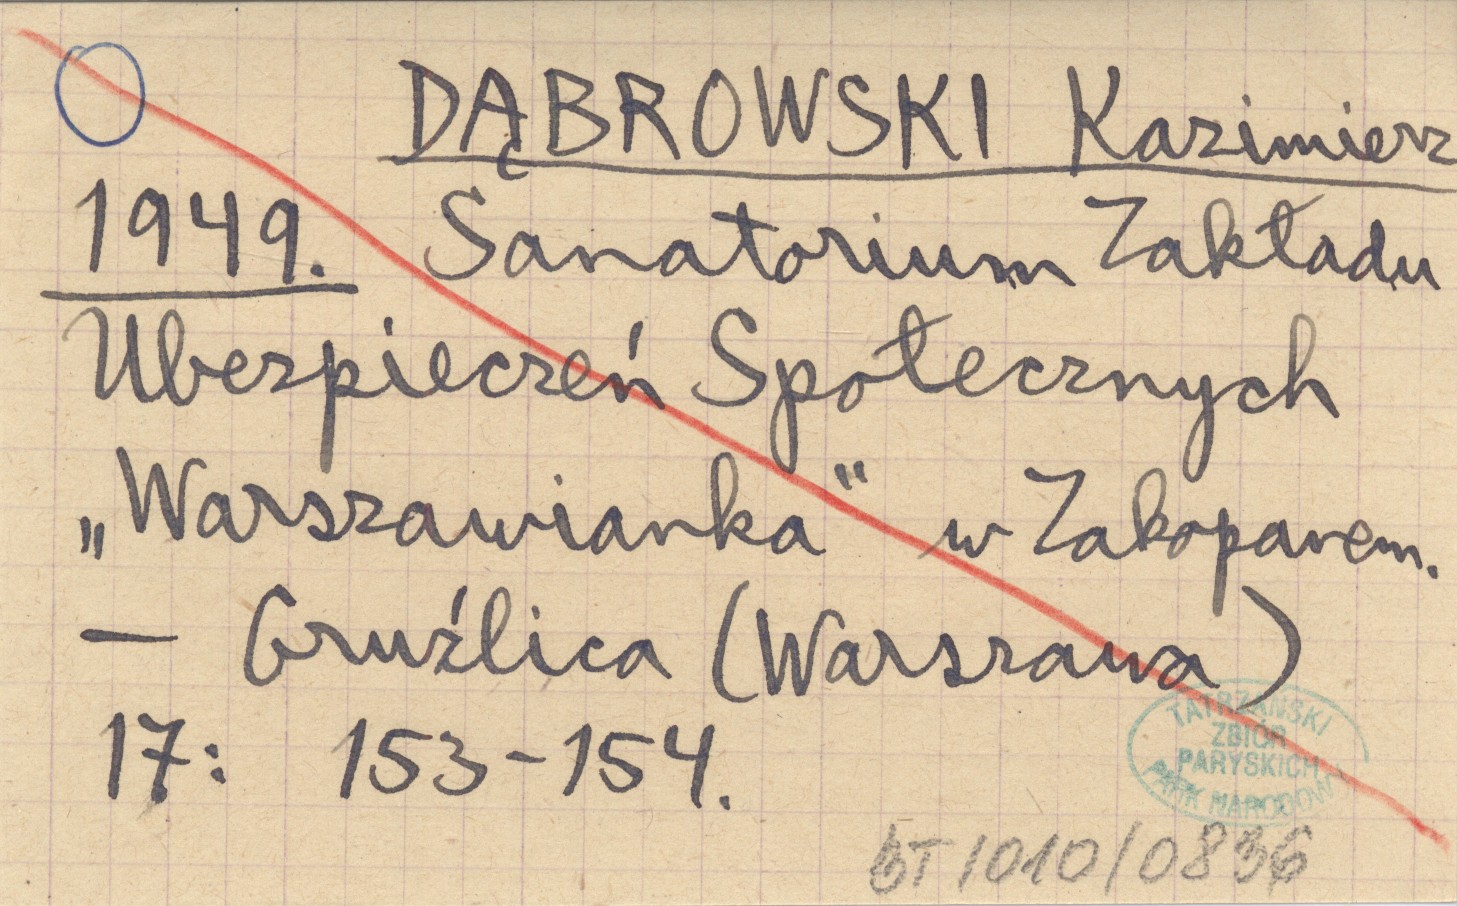 DĄBROWSKI Kazimierz
1949. Sanatorium Zakładu
Ubezpieczeń Społecznych
„Warszawianka" w Zakopanem.
— Gruźlica (Warszawa)
17: 153-154.
TATRZAŃSKI
ZBIÓR
PARYSKICH
PARK NARODOWY
BT/1010/0836